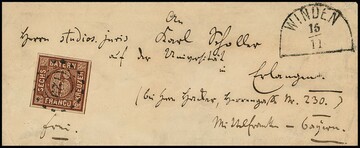 An
Herrn studios. juris Karl Scholler
auf der Universität
in
Erlangen.
(bei Herrn Hacker, Herrengasse Nr. 230.)
Mittelfranken – Bayern.
frei.
WINDEN
16
11
BAYERN
SECHS
KREUZER
FRANCO